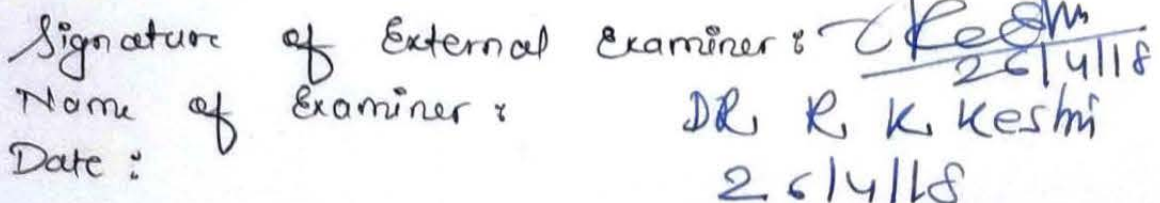 Signature of External Examiner :
26/4/18
Name of Examiner : DR. R. K. Keshri
Date : 26/4/18